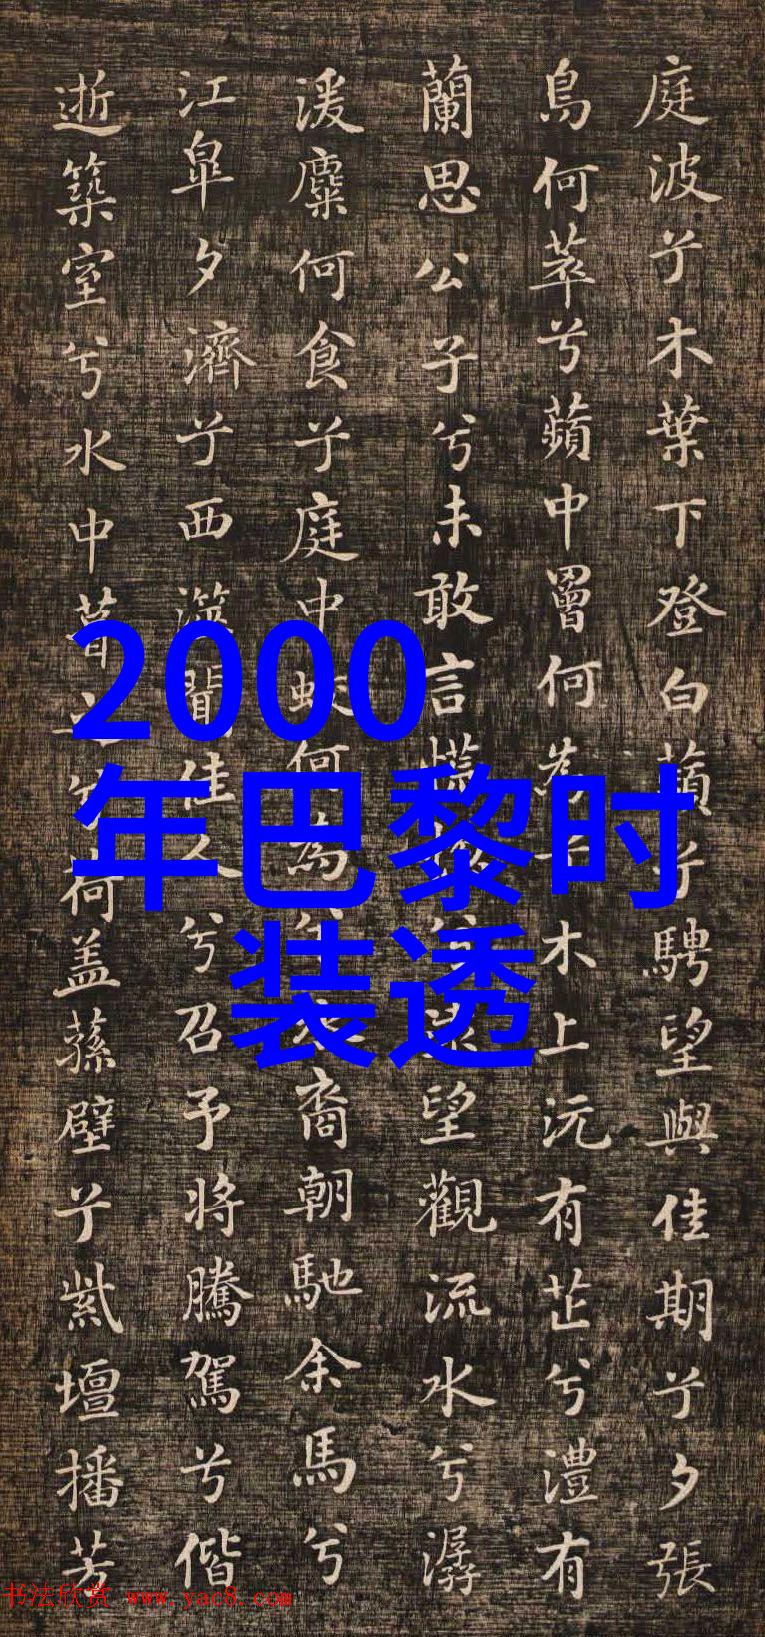 庭波兮木葉下登白蘋兮騁望與佳期兮夕張
鳥何萃兮蘋中罾何為木上沅有芷兮澧有
蘭思公子兮未敢言望觀流水兮潺
湲麋何食兮庭中蛟何為兮裔朝馳余馬兮
江皋夕濟兮西澨聞佳人兮召予將騰駕兮偕
逝築室兮水中葺兮荷蓋蓀壁兮紫壇播芳
2000
年巴黎时
装透
书法欣赏 www.yac8.com